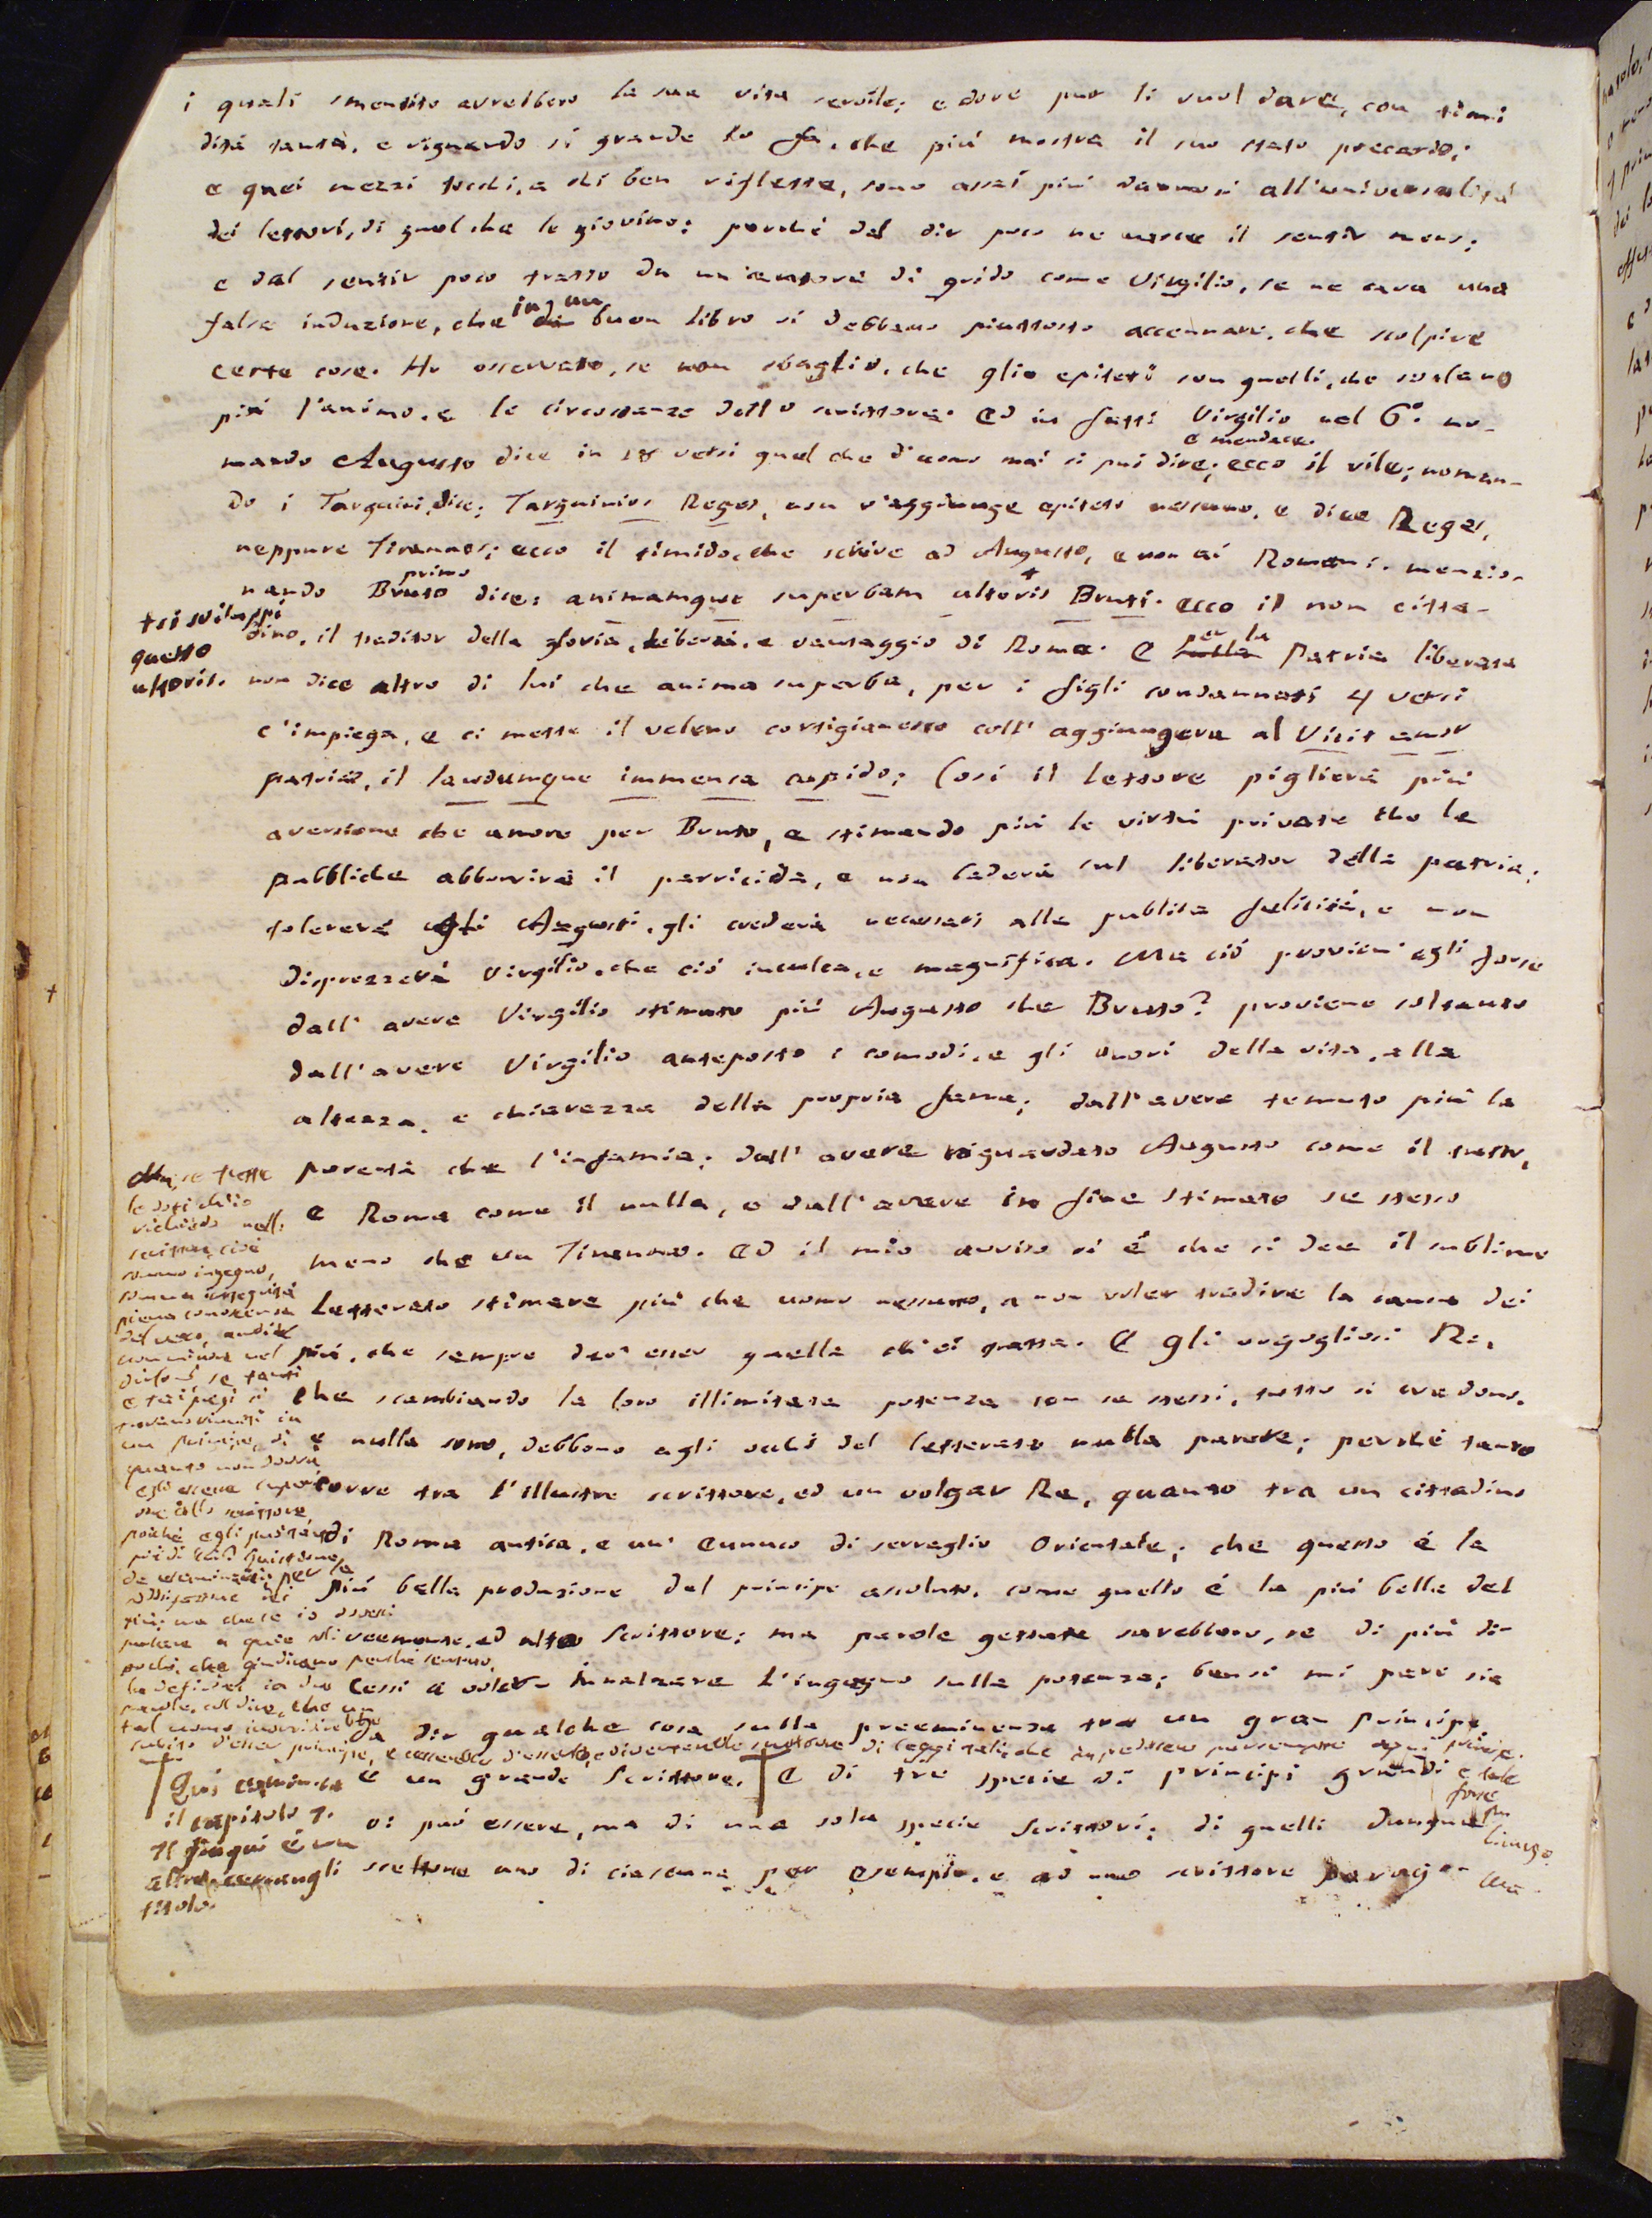 i quali smentito avrebbero la sua vita servile; e dove pur li vuol dare, con timi
dità tanta, e riguardo sì grande lo fa, che più mostra il suo stato precario;
e quei mezzi tocchi, a chi ben riflette, sono assai più dannosi all'universalità
dei lettori, di quel che le giovino: perché dal dir poco ne nasce il sentir meno;
e dal sentir poco tratto da un'autore di grido come Virgilio, se ne cava una
falsa induzione, che in un buon libro si debbano piuttosto accennare, che scolpire
certe cose. Ho osservato, se non sbaglio, che gli epiteti son quelli, che svelano
più l'animo, e le circostanze dello scrittore. Ed in fatti Virgilio nel 6.° no-
mando Augusto dice in versi quel che d'uomo mai si può dire; ecco il vile, e mendace; noman-
do i Tarquini, dice; Tarquinios Reges, non v'aggiunge epiteto nessuno, e dice Reges,
neppure Tirannos; ecco il timido, che scrive ad Augusto, e non ai Romani. menzio-
nando Bruto primo dice: animamque superbam ultoris + Bruti. ecco il non citta-
+ si sviluppi
questo
ultoris.
dino, il traditor della gloria, libertà, e vantaggio di Roma. E per la Patria liberata
non dice altro di lui che anima superba, per i figli condannati 4 versi
c'impiega, e ci mette il veleno cortigianesco coll' aggiungere al Vicit amor
patriae, il laudumque immensa cupido; Così il lettore piglierà più
aversione che amore per Bruto, e stimando più le virtù private che le
pubbliche abborrirà il parricida, e non baderà sul liberator della patria;
tolererà gli Augusti, gli crederà necessari alla publica felicità, e non
disprezzerà Virgilio, che ciò inculca, e magnifica. Ma ciò provien' egli forse
dall' avere Virgilio stimato più Augusto che Bruto? proviene soltanto
dall'avere Virgilio anteposto i comodi, e gli onori della vita, alla
altezza, e chiarezza della propria fama; dall'avere temuto più la
povertà che l'infamia; dall' avere riguardato Augusto come il tutto,
e Roma come il nulla, e dall'avere in fine stimato se stesso
meno che un Tiranno. Ed il mio avviso si è che si dee il sublime
Letterato stimare più che uomo nessuno, a non voler tradire la causa dei
più, che sempre dev' esser quella ch'ei tratta. E gli orgogliosi Re,
che scambiando la loro illimitata potenza con se stessi, tutto si credono,
e nulla sono, debbono agli occhi del letterato nulla parere; perché tanto
corre tra l'illustre scrittore, ed un volgar Re, quanto tra un cittadino
di Roma antica, e un' Eunuco di serraglio Orientale; che questo è la
più bella produzione del principe assoluto, come quello è la più bella del
veemente, ed alto Scrittore: ma parole gettate sarebbero, se di più di-
cessi a voler innalzare l'ingegno sulla potenza; bensì mi pare sia
da dir qualche cosa sulla preeminenza tra un gran principe,
e un grande Scrittore. E di tre specie di principi grandi
vi può essere, ma di una sola specie scrittori; di quelli dunque
scettone uno di ciascuna per esempio, e ad uno scrittore parago-
Ma, se tutte
le doti ch'io
richiedo nello
scrittore, cioè
sommo ingegno,
somma integrità
piena conoscenza
del vero, ardir
non minore nel
dirlo: se tanti
e tai pregi si
trovano riuniti in
un principe, di
quanto non dovrà
egli essere superio
re allo scrittore
poiché egli
più di
da
tal uomo
subito d'esser principe, e cesserebbe d'esserlo, divenendo autore di leggi tali, che impedissero per sempre ogni principe.
Qui comincia
il capitolo 7.
Il fin qui è un
altro
titolo.
e tale
forse
fu
Licurgo.